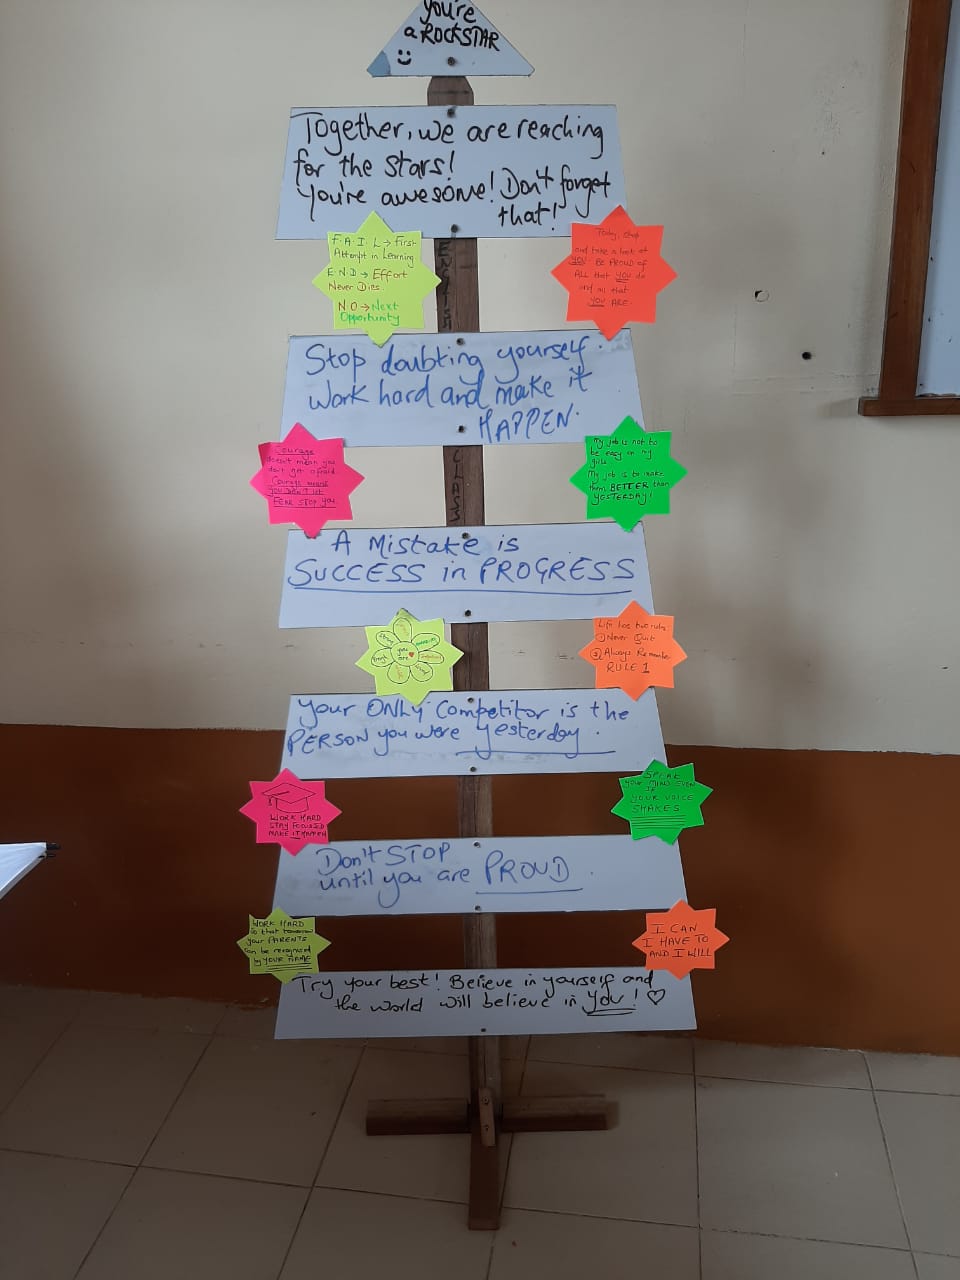 You're
a ROCKSTAR
Together, we are reaching
for the stars!
You're awesome! Don't forget
that!
F.A.I.L → First
Attempt in Learning
E.N.D → Effort
Never Dies.
N.O → Next
Opportunity
Today, stop
and take a look at
YOU. BE PROUD OF
ALL that YOU do
and all that
YOU ARE.
Stop doubting yourself.
Work hard and make it
HAPPEN.
Courage
doesn't mean you
don't get afraid
Courage means
you DON'T let
FEAR STOP you
My job is not to
be easy on my
girls.
My job is to make
them BETTER than
YESTERDAY!
CLASS
A Mistake is
SUCCESS in PROGRESS
you
are
Life has two rules:
① Never Quit
② Always Remember
RULE 1
Your ONLY Competitor is the
PERSON you were yesterday.
WORK HARD
STAY FOCUSED
MAKE IT HAPPEN
SPEAK
YOUR MIND EVEN
IF
YOUR VOICE
SHAKES
Don't STOP
until you are PROUD.
WORK HARD
so that tomorrow
your PARENTS
can be recognised
by YOUR NAME
I CAN
I HAVE TO
AND I WILL
Try your best! Believe in yourself and
the world will believe in you! ♡